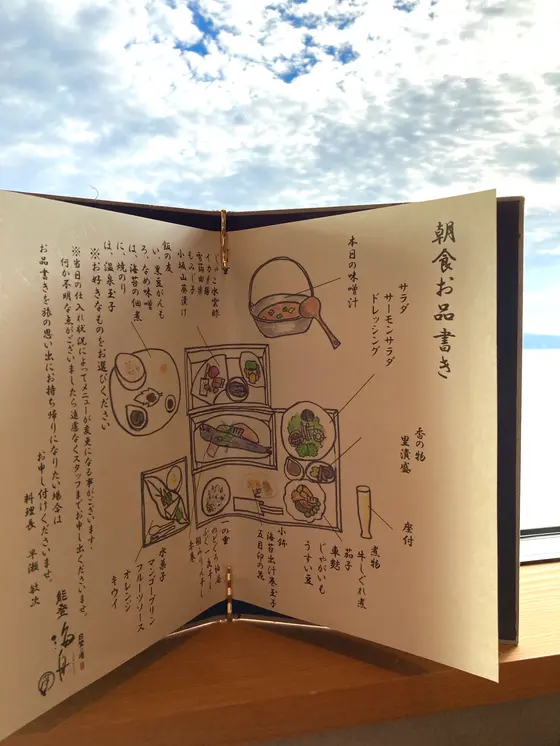 朝食お品書き
本日の味噌汁
サラダ
サーモンサラダ
ドレッシング
香の物
里漬盛
座付
煮物
牛しぐれ煮
茄子
車麩
じゃがいも
うすい豆
小鉢
海苔出汁巻玉子
五目卯の花
水菓子
マンゴープリン
フルーツソース
オレンジ
キウイ
水雲酢
もみじ子
小城山葵漬け
飯の友
い、黒豆がんも
ろ、なめ味噌
は、海苔の佃煮
に、焼のり
ほ、温泉玉子
※お好きなものをお選びください
※当日の仕入れ状況によってメニューが変更になる事がございます。
何か不明な点がございましたら遠慮なくスタッフまでお申し出くださいませ。
お品書きを旅の思い出にお持ち帰りになりたい場合は
お申し付けくださいませ。
料理長 平瀬 敏次
能登 海舟